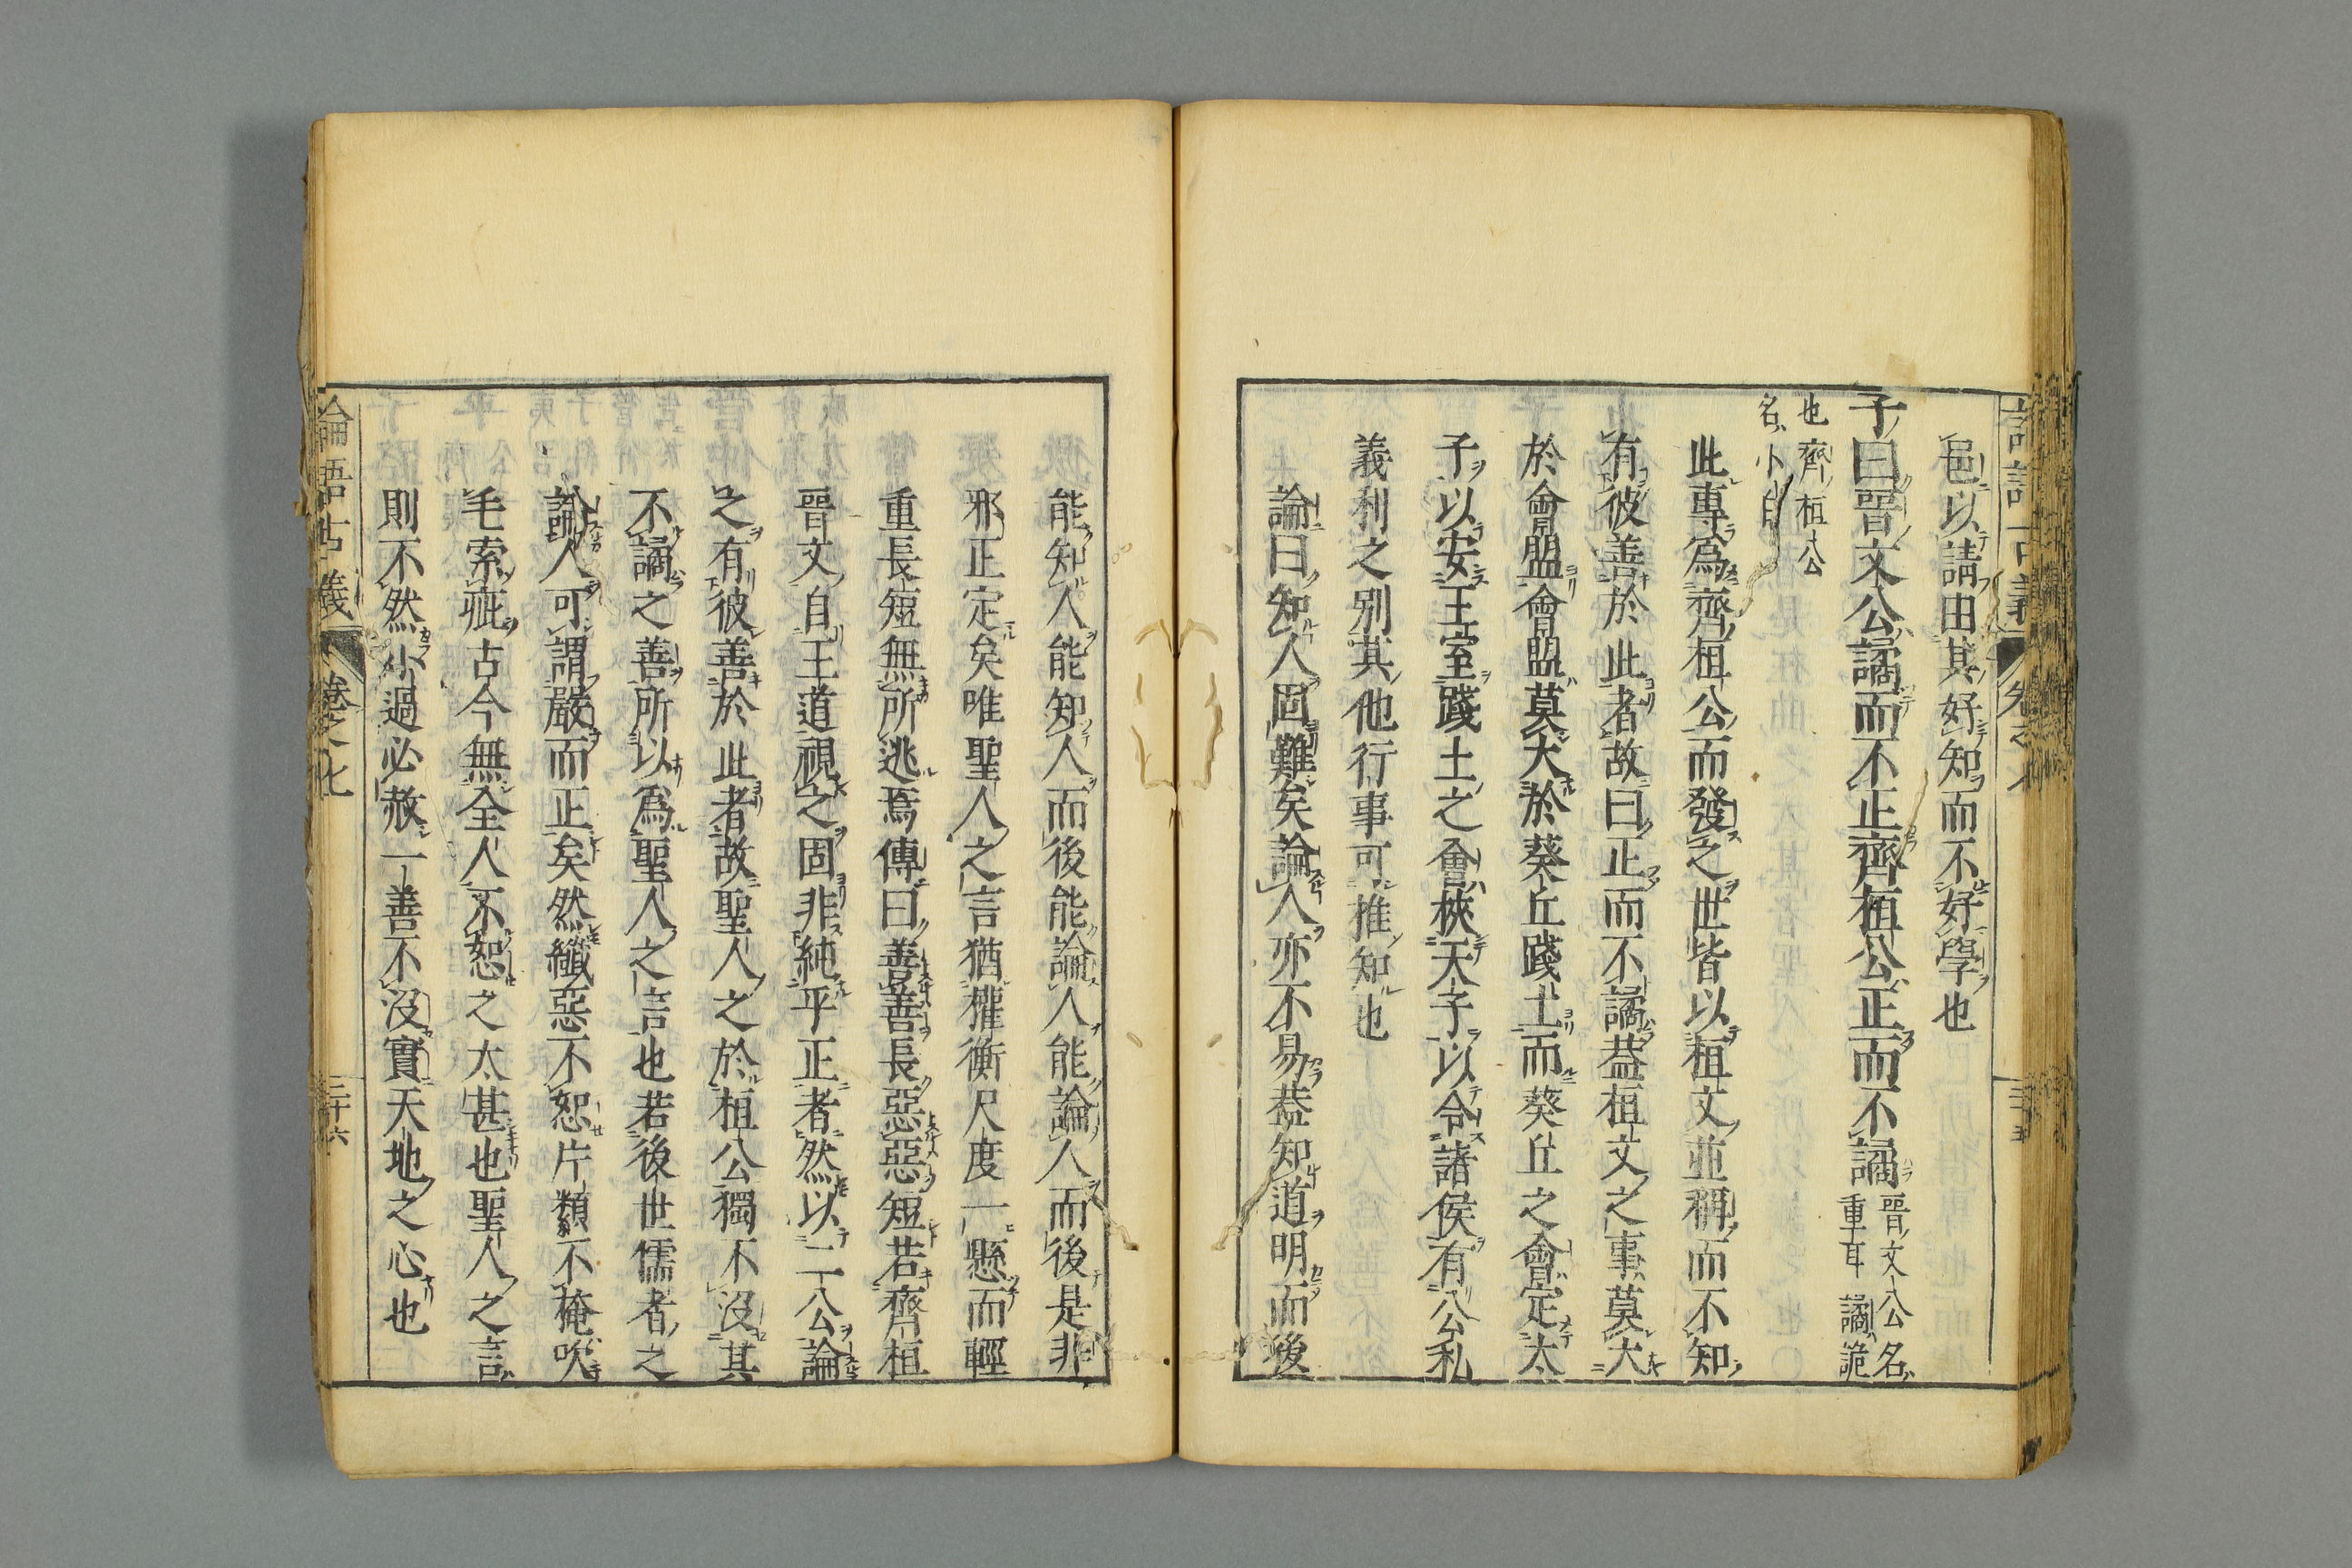 邑以請由其好知而不好學也
子曰晉文公譎而不正齊桓公正而不譎
晉文公名
重耳譎詭
也齊桓公
名小白
此專爲齊桓公而發之世皆以桓文並稱而不知
有彼善於此者故曰正而不譎蓋桓文之事莫大
於會盟會盟莫大於葵丘踐土而葵丘之會定太
子以安王室踐土之會挾天子以令諸侯有公私
義利之別其他行事可推知也
論曰知人固難矣論人亦不易蓋知道明而後
能知人能知人而後能論人能論人而後是非
邪正定矣唯聖人之言猶權衡尺度一懸而輕
重長短無所逃焉傳曰善善長惡惡短若齊桓
晉文自王道視之固非純乎正者然以二公論
之有彼善於此者故聖人之於桓公獨不沒其
不譎之善所以爲聖人之言也若後世儒者之
論人可謂嚴而正矣然纖惡不恕片纇不掩吹
毛索疵古今無全人不恕之太甚也聖人之言
則不然小過必赦一善不沒實天地之心也
論語古義
卷之七
三十六